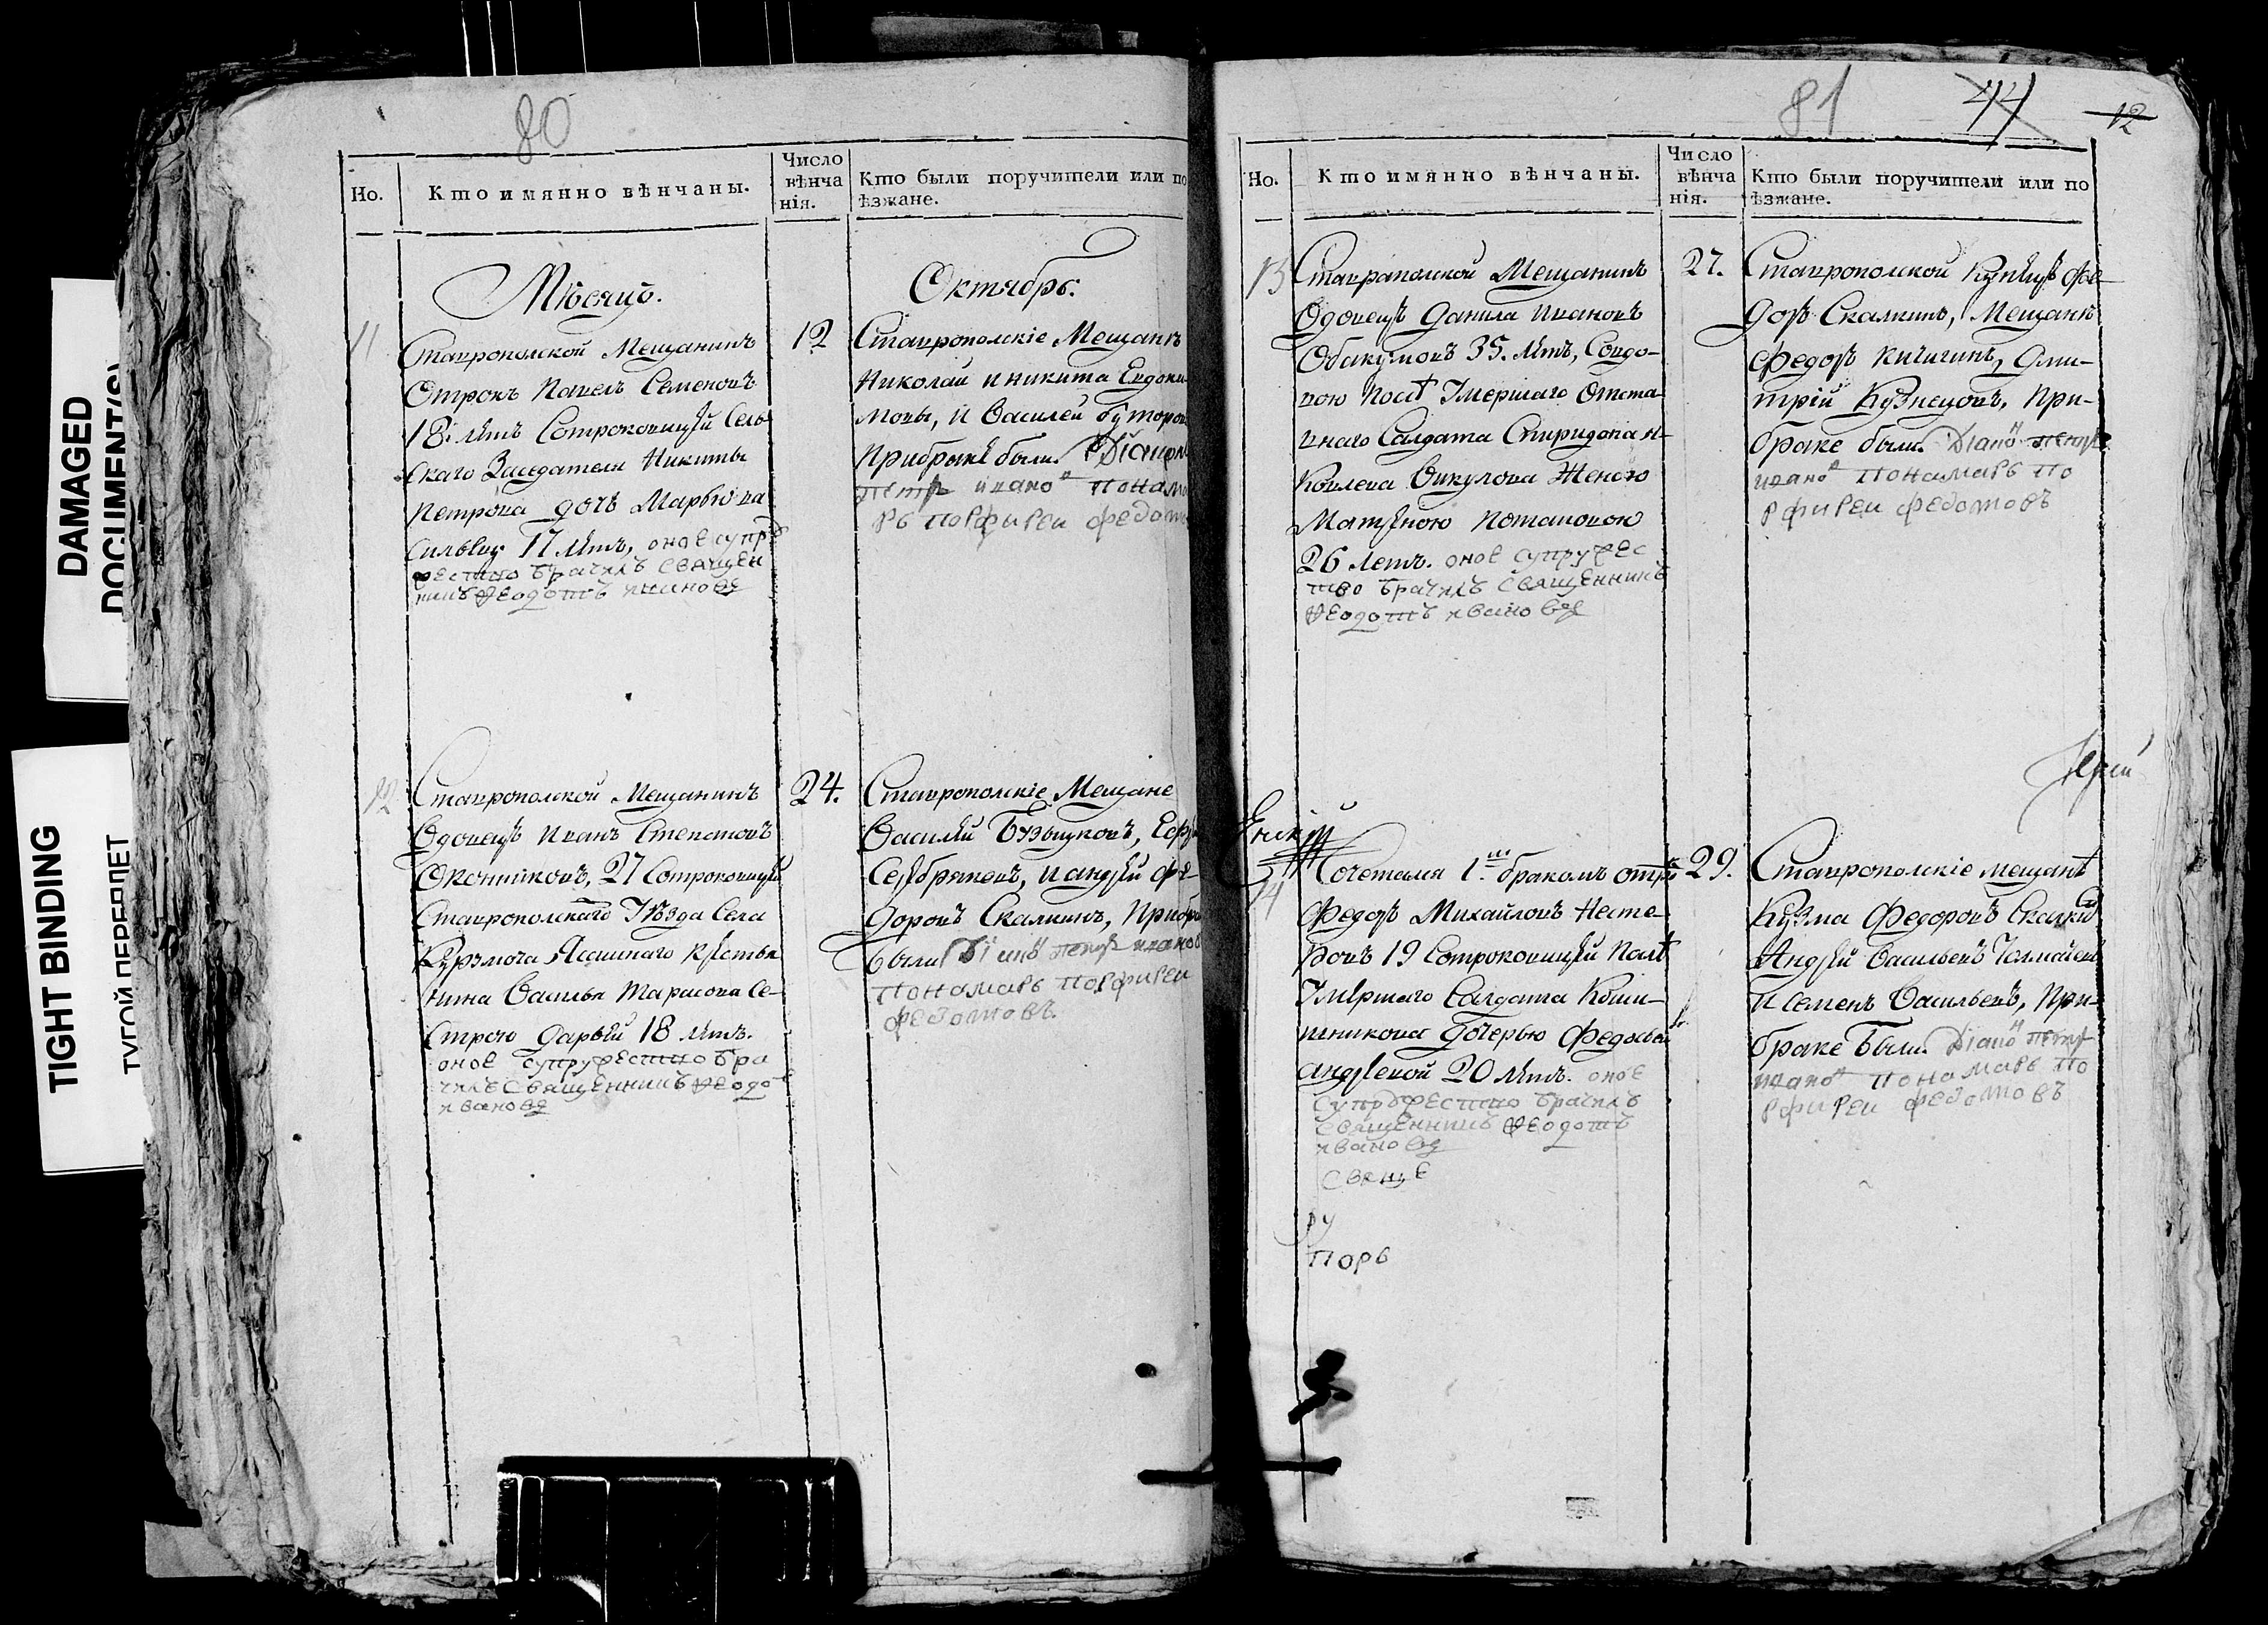 DAMAGED
DOCUMENT(S)
TIGHT BINDING
ТУГОЙ ПЕРЕПЛЕТ
80
Но.
Кто имянно вѣнчаны.
Число
вѣнча
нія.
Кто были поручители или по
ѣзжане.
Мѣсяцъ.
Октябрь.
11
Ставропольской Мещанинъ
Отрокъ Павелъ Семеновъ
18. лѣтъ Сотроковицей Сель
скаго Заседателя Никиты
Петрова дочь Марью ва
сильеву 17 лѣтъ, оное супр
жество брачилъ священ
никъ Ѳеодотъ
12
Ставропольскіе Мещанѣ
Николай и никита Евдоки
мовы, и Василей буторов
Прибракѣ были. Діакон
петр ивано понама
рь порфиреи федото
12
Ставропольской Мещанинъ
Вдовецъ Иванъ Степановъ
27 Сотроковицей
Ставропольскаго Уѣзда Села
Курумоча Ясашнаго Крестья
нина Василья Тарасова Се-
строю Дарьей 18 лѣтъ.
оное супружество бра
чилъ священникъ Ѳеодо
ивановъ
24.
Ставропольскіе Мещане
Василей
Серебряковъ, и андрей фе
доровъ Скалкинъ, Прибра
были петр иванов
пономарь порфиреи
федотовъ.
81
44
12
Но.
Кто имянно вѣнчаны.
Число
вѣнча
нія.
Кто были поручители или по
ѣзжане.
13
Ставрапольской Мещанинъ
Вдовецъ Данила Ивановъ
Обакумовъ 35. лѣтъ, Совдо-
вою послѣ Умершаго Отста
внаго Салдата Спиридона Я-
ковлева Викулова Женою
Матреною Потаповою
26 летъ. оное супружес
тво брачилъ священникъ
Ѳеодотъ ивановъ
27.
Ставропольской купецъ Фе
доръ Скалкинъ, Мещанѣ
Федоръ Кичигинъ, Дми-
трій Кузнецовъ, При-
браке были. Діако петр
ивано понамарь по
рфиреи федотовъ
Іерей
14
Сочетался 1. бракомъ отр
Федоръ Михайловъ Несте-
ровъ 19 Сотроковицей Послѣ
Умершаго Салдата
дочерью Федосьей
андреевой 20 лѣтъ. оное
супружество брачилъ
священникъ Ѳеодотъ
ивановъ
свяще
ру
порь
29.
Ставропольскіе мещанѣ
Кузма Федоровъ Скалкин
Андрей Васильевъ Толмачев
и Семенъ Васильевъ, При-
браке были. Діако петр
ивано понамарь по
рфиреи федотовъ